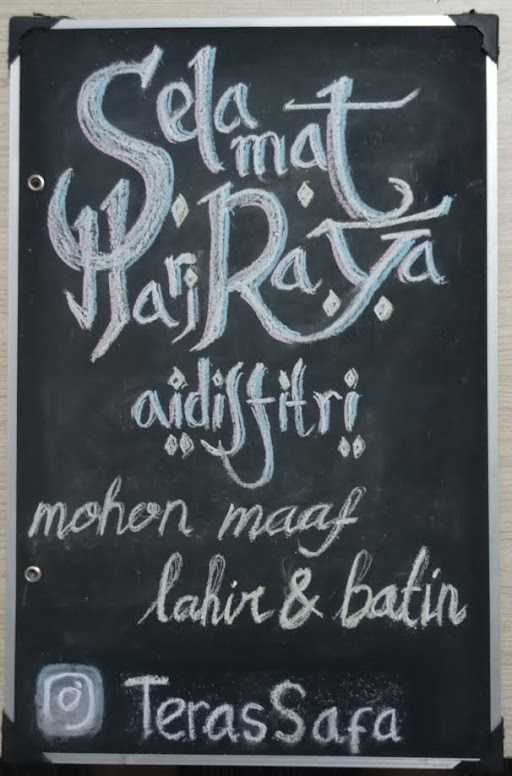 Selamat
Hari Raya
aidilfitri
mohon maaf
lahir & batin
TerasSafa